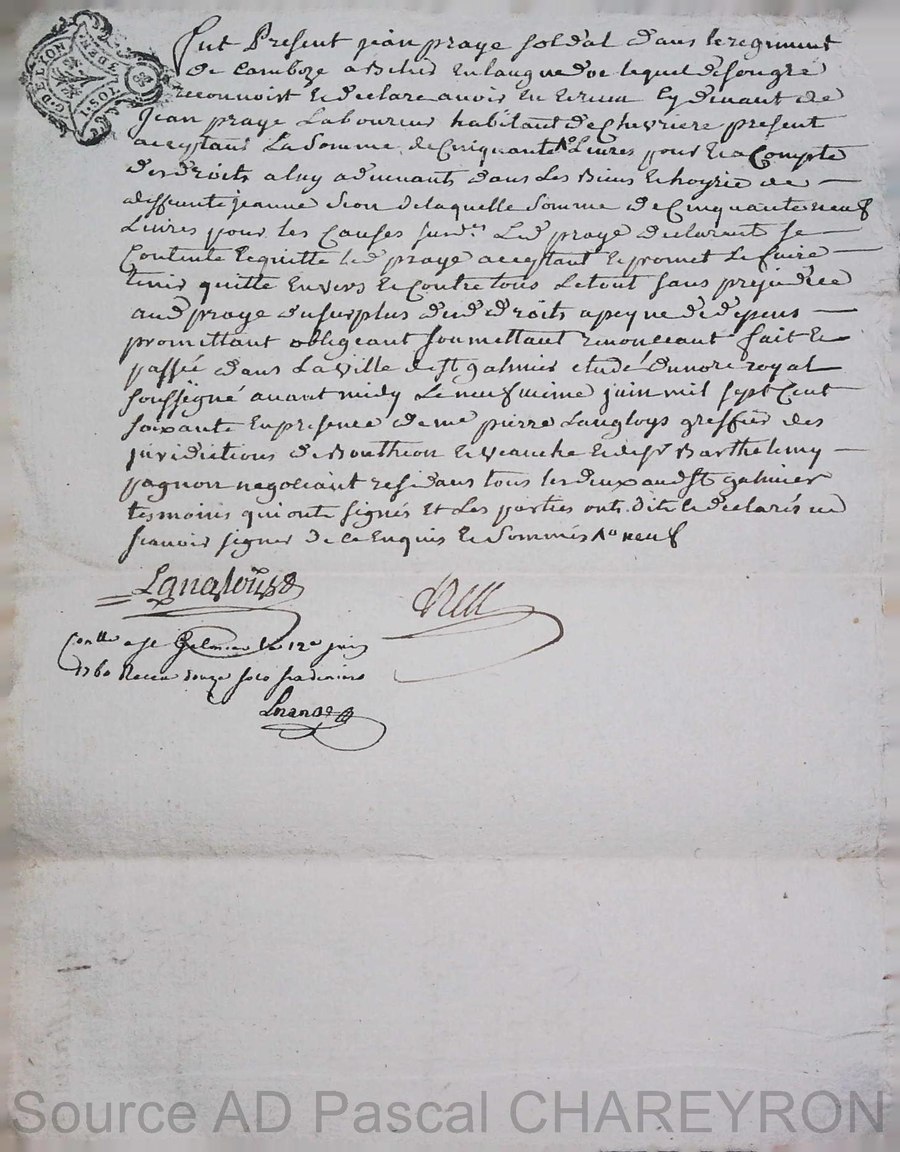 GD E LION
3 DEN
1 SOL
Fut Present jean praye soldat dans le regiment
de en Languedoc lequel de son gré
reconnoist et declare avoir eu et receu cy devant de
Jean praye Laboureur habitant de Chevriere present
acceptant La Somme de Cinquante Livres pour et a Compte
des droits a luy advenants dans Les Biens et hoyrie de
deffunte jeanne de laquelle somme de Cinquante neuf
Livres pour les Causes susd.es Led praye declarant se
Contente et quitte led praye acceptant et promet Le faire
tenir quitte envers et Contre tous Le tout sans prejudice
aud praye du surplus desd droits a peyne de depens
promettant obligeant soumettant renonceant fait et
passé dans La ville de St galmier etude du nore royal
soussigné avant midy Le neufvieme juin mil sept Cent
soixante en presence de me pierre Langloys greffier des
juridictions de Bouthéon et Veauche et de sr Barthelemy
pagnon negotiant residants tous les deux aud St galmier
tesmoins qui ont signés et Les parties ont dit et declarés ne
scavoir signer de ce Enquis et Sommés
Langlois
Conllé a St Galmier le 12e juin
1760 Receu douze sols
Source AD Pascal CHAREYRON